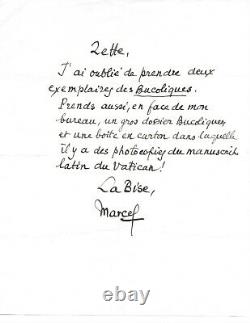 Zette,
J'ai oublié de prendre deux
exemplaires des Bucoliques.
Prends aussi, en face de mon
bureau, un gros dossier Bucoliques
et une boîte en carton dans laquelle
il y a des photocopies du manuscrit
latin du Vatican !
La Bise,
Marcel
ebay